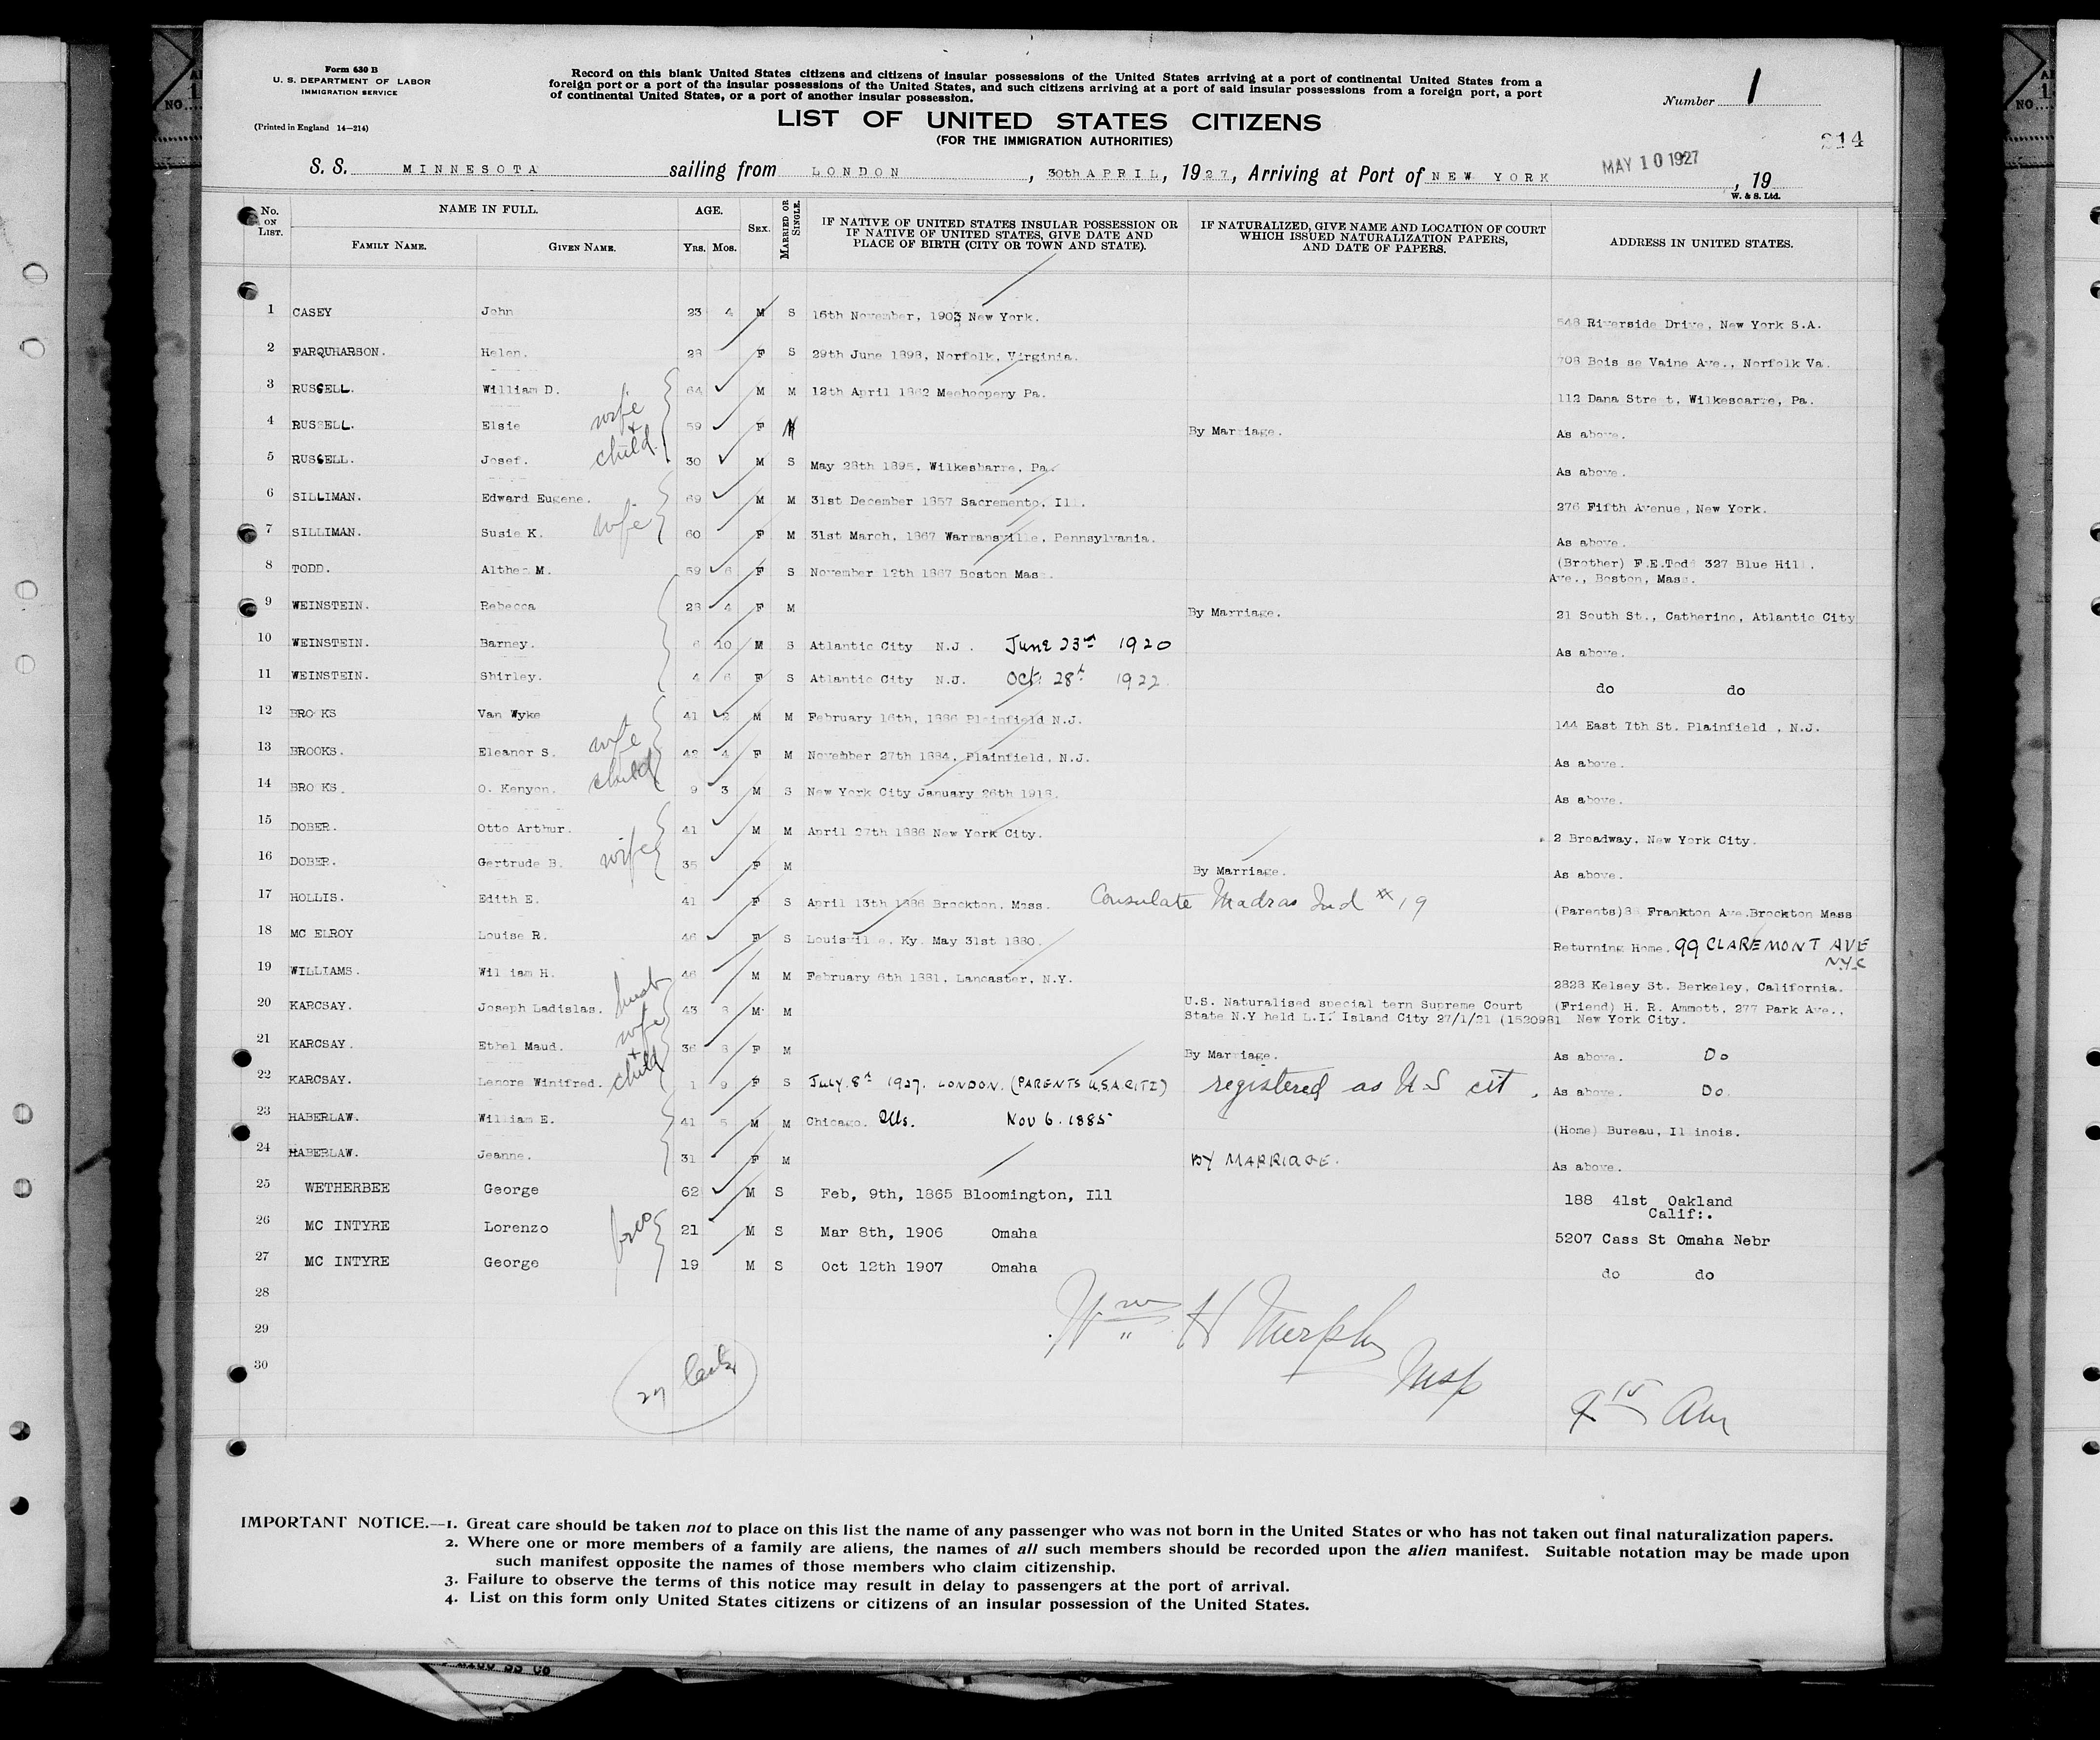 Form 630 B
U. S. DEPARTMENT OF LABOR
IMMIGRATION SERVICE
(Printed in England 14—214)
Record on this blank United States citizens and citizens of insular possessions of the United States arriving at a port of continental United States from a
foreign port or a port of the insular possessions of the United States, and such citizens arriving at a port of said insular possessions from a foreign port, a port
of continental United States, or a port of another insular possession.
LIST OF UNITED STATES CITIZENS
(FOR THE IMMIGRATION AUTHORITIES)
Number 1
214
S. S. MINNESOTA sailing from LONDON, 30th APRIL, 1927, Arriving at Port of NEW YORK MAY 10 1927, 19
W. & S. Ltd.
No. ON LIST. NAME IN FULL. FAMILY NAME. GIVEN NAME. AGE. Yrs. Mos. SEX. MARRIED OR SINGLE. IF NATIVE OF UNITED STATES INSULAR POSSESSION OR IF NATIVE OF UNITED STATES, GIVE DATE AND PLACE OF BIRTH (CITY OR TOWN AND STATE). IF NATURALIZED, GIVE NAME AND LOCATION OF COURT WHICH ISSUED NATURALIZATION PAPERS, AND DATE OF PAPERS. ADDRESS IN UNITED STATES.
1 CASEY John 23 4 M S 16th November, 1903 New York. 548 Riverside Drive, New York S.A.
2 FARQUHARSON. Helen. 28 F S 29th June 1898, Norfolk, Virginia. 708 Bois se Vaine Ave., Norfolk Va.
3 RUSSELL. William D. 64 M M 12th April 1862 Meehoopeny Pa. 112 Dana Street, Wilkescarre, Pa.
wife + child.
4 RUSSELL. Elsie 59 F M By Marriage. As above.
5 RUSSELL. Josef. 30 M S May 28th 1895, Wilkesbarre, Pa. As above.
6 SILLIMAN. Edward Eugene. 69 M M 31st December 1857 Sacremento, Ill. 276 Fifth Avenue, New York.
wife
7 SILLIMAN. Susie K. 60 F M 31st March, 1867 Warransville, Pennsylvania. As above.
8 TODD. Althea M. 59 6 F S November 12th 1867 Boston Mass. (Brother) F.E.Todd 327 Blue Hill.
Ave., Boston, Mass.
9 WEINSTEIN. Rebecca 28 4 F M By Marriage. 21 South St., Catherine, Atlantic City
10 WEINSTEIN. Barney. 6 10 M S Atlantic City N.J. June 23rd 1920 As above.
11 WEINSTEIN. Shirley. 4 6 F S Atlantic City N.J. Oct. 28th 1922 do do
12 BROOKS Van Wyke 41 2 M M February 16th, 1886 Plainfield N.J. 144 East 7th St. Plainfield , N.J.
wife child
13 BROOKS. Eleanor S. 42 4 F M November 27th 1884, Plainfield, N.J. As above.
14 BROOKS. O. Kenyon. 9 3 M S New York City January 26th 1918. As above.
15 DOBER. Otto Arthur. 41 M M April 27th 1886 New York City. 2 Broadway, New York City.
wife
16 DOBER. Gertrude B. 35 F M By Marriage. As above.
17 HOLLIS. Edith E. 41 F S April 13th 1886 Brockton. Mass. Consulate Madras Ind # 19 (Parents)88 Frankton Ave.Brockton Mass
18 MC ELROY Louise R. 46 F S Louisville. Ky. May 31st 1880. Returning Home. 99 CLAREMONT AVE
N.Y.C
19 WILLIAMS. William H. 46 M M February 6th 1881. Lancaster, N.Y. 2828 Kelsey St. Berkeley, California.
husb wife + child
20 KARCSAY. Joseph Ladislas. 43 8 M M U.S. Naturalised special tern Supreme Court (Friend) H. R. Ammott, 277 Park Ave.,
State N.Y held L.I. Island City 27/1/21 (1520981 New York City.
21 KARCSAY. Ethel Maud. 36 8 F M By Marriage. As above. Do
22 KARCSAY. Lenore Winifred. 1 9 F S JULY. 8th 1927. LONDON. (PARENTS U.S.A. CITZ) registered as U S cit. As above. Do.
23 HABERLAW. William E. 41 5 M M Chicago. Ills. NOV 6. 1885 (Home) Bureau, Illinois.
24 HABERLAW. Jeanne. 31 F M BY MARRIAGE. As above.
25 WETHERBEE George 62 M S Feb, 9th, 1865 Bloomington, Ill 188 41st Oakland
Calif:.
26 MC INTYRE Lorenzo 21 M S Mar 8th, 1906 Omaha 5207 Cass St Omaha Nebr
bros
27 MC INTYRE George 19 M S Oct 12th 1907 Omaha do do
28
29
30
Wm H Murphy
Insp
9 15 Am
27
IMPORTANT NOTICE.—1. Great care should be taken not to place on this list the name of any passenger who was not born in the United States or who has not taken out final naturalization papers.
2. Where one or more members of a family are aliens, the names of all such members should be recorded upon the alien manifest. Suitable notation may be made upon
such manifest opposite the names of those members who claim citizenship.
3. Failure to observe the terms of this notice may result in delay to passengers at the port of arrival.
4. List on this form only United States citizens or citizens of an insular possession of the United States.